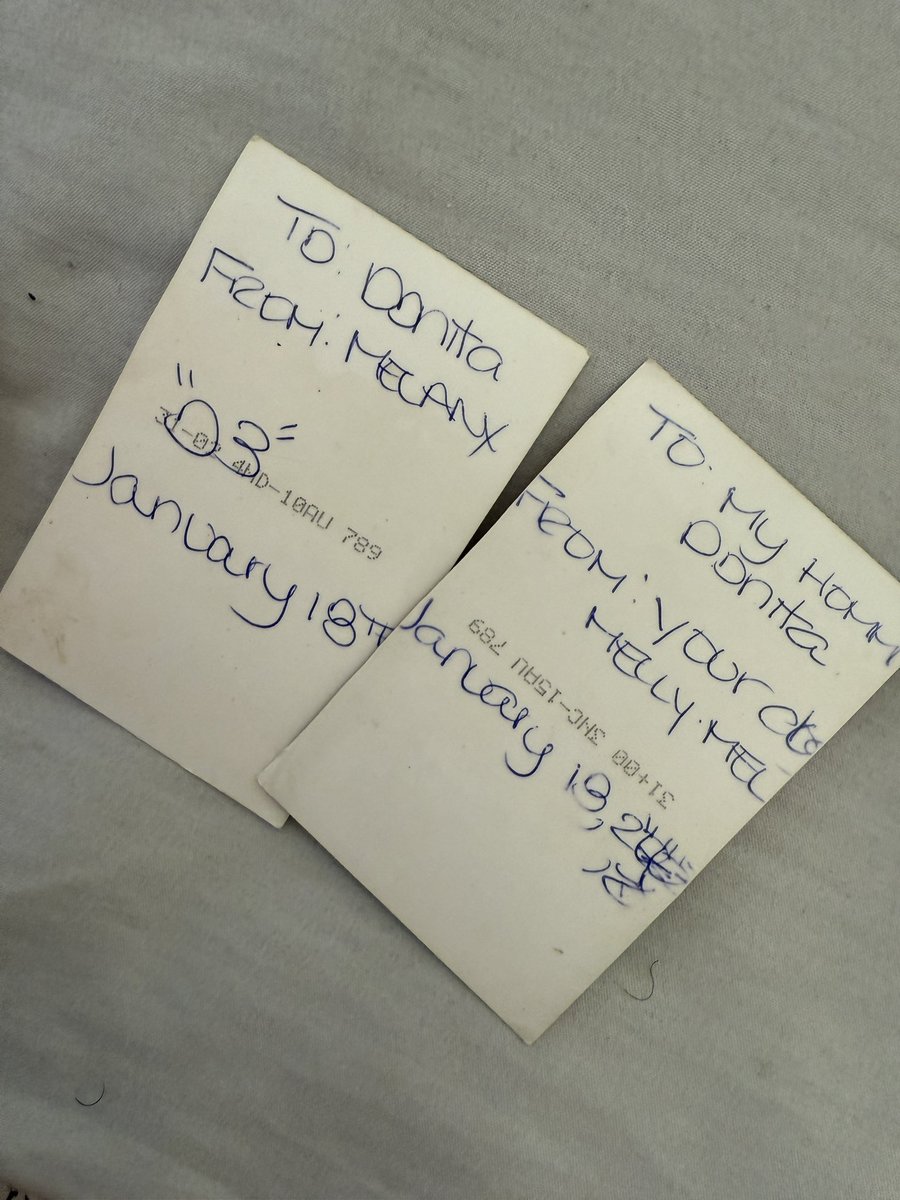 TO: Donita
FROM: MELANY
"03"
4HD-10AU 789
January 18TH
TO: MY HOMM
DONITA
FROM: YOUR
MELLY.MEL
31+00 3HC-15AU 789
January 18,